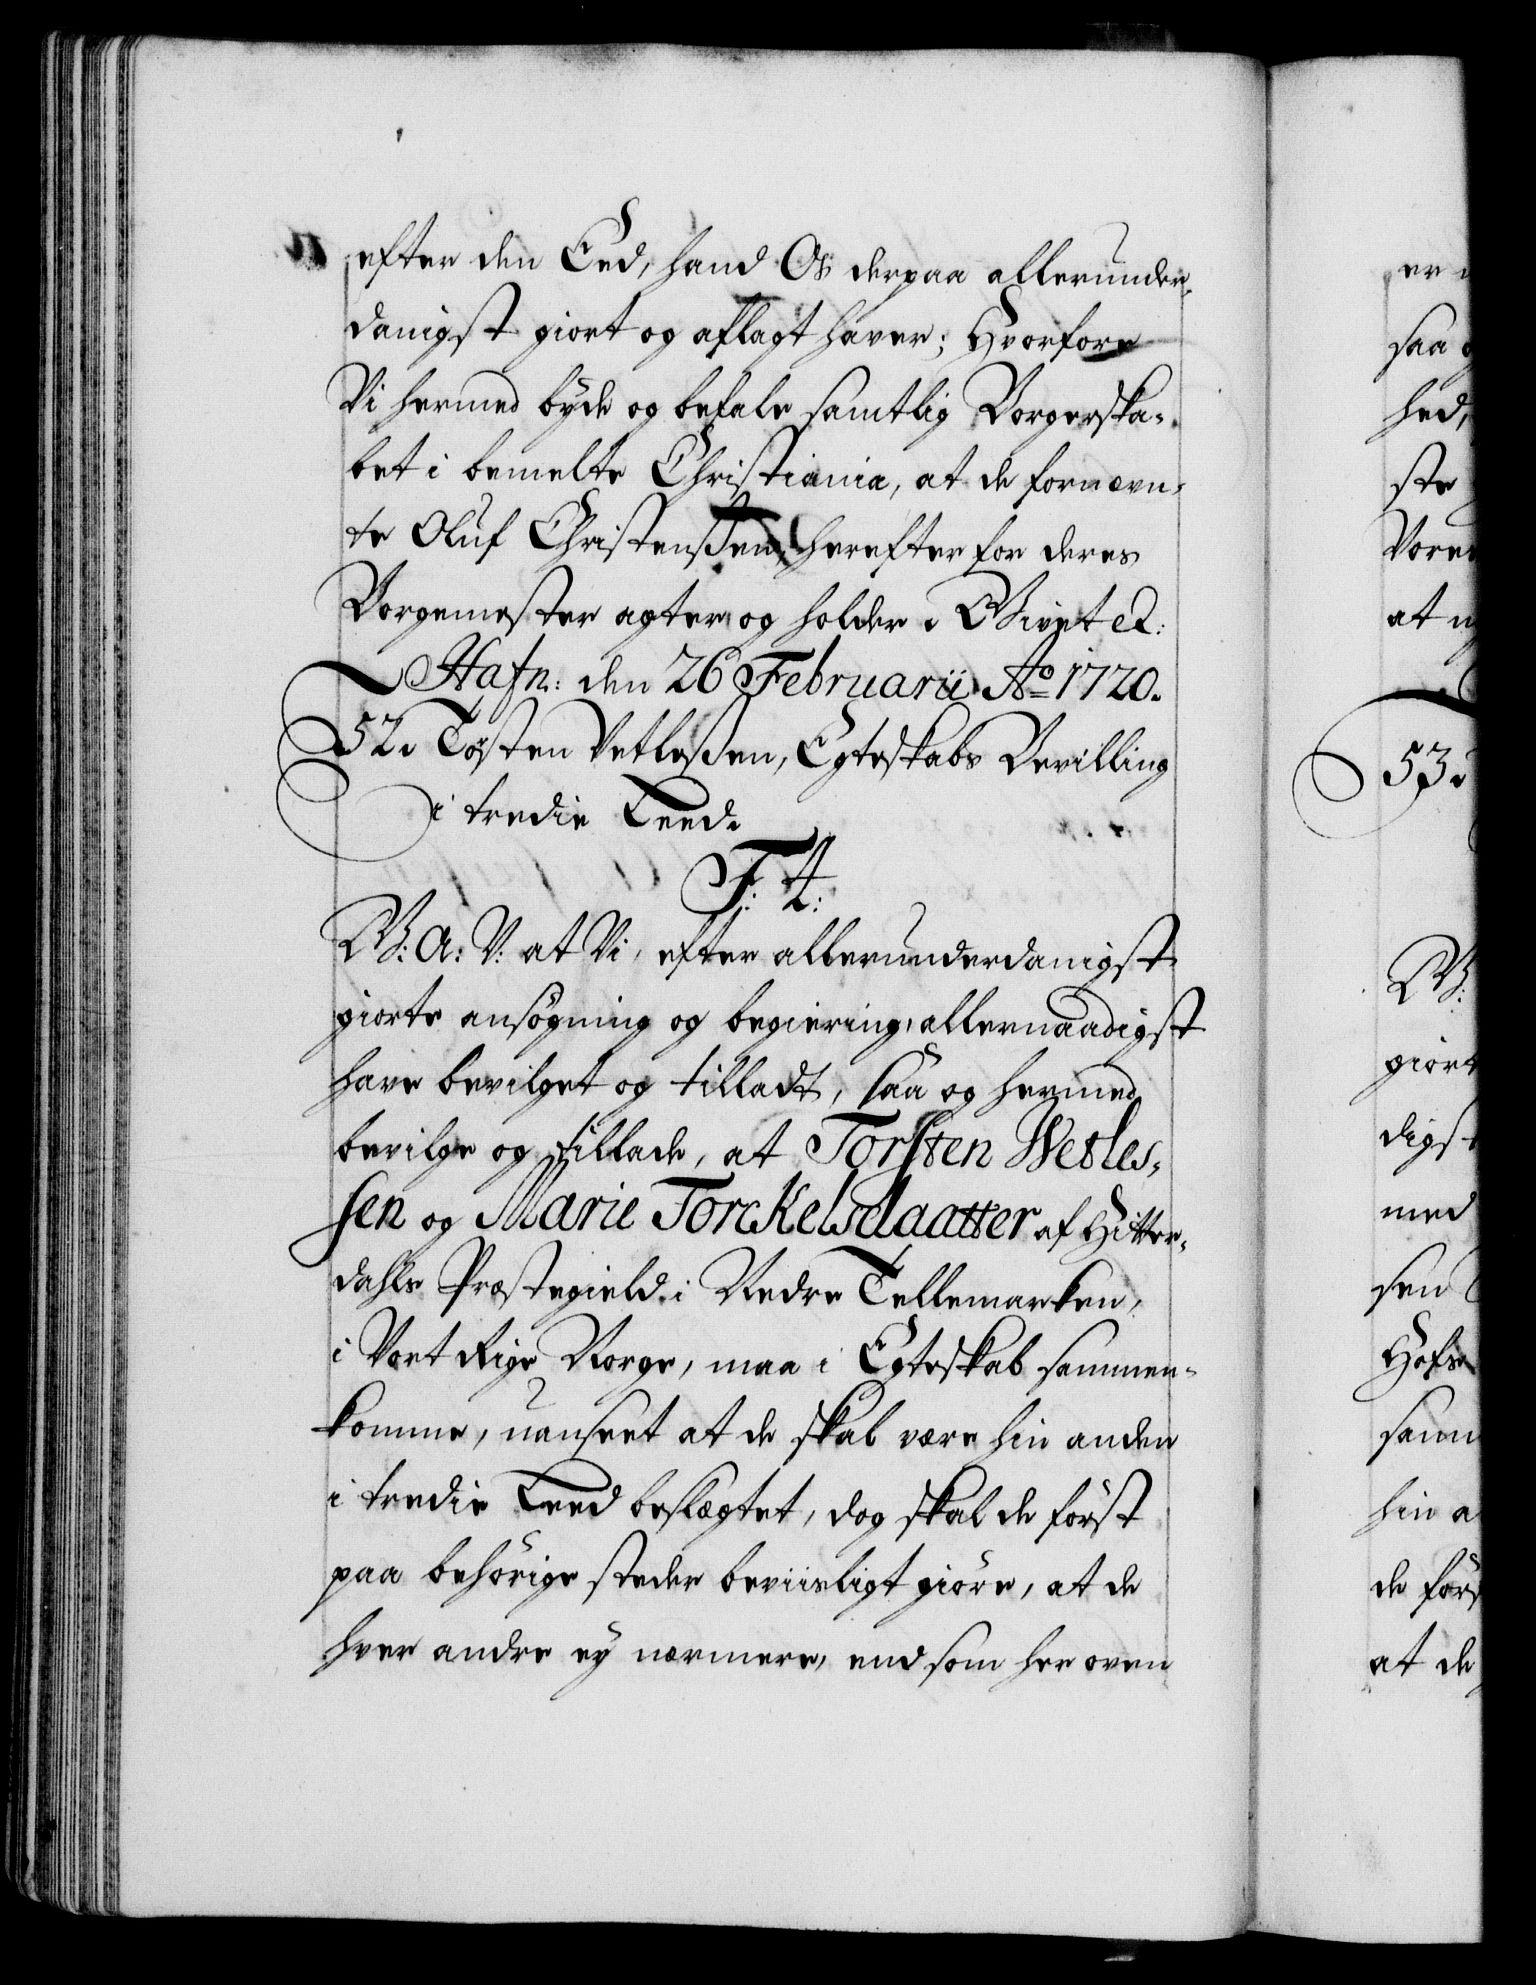 efter den Eed, hand Os derpaa allerunder,
danigst giort og aflagt haver; Hvorfore
Vi hermed byde og befale samtlig Borgerska-
bet i bemelte Christiania, at de fornævn-
te Oluf Christenssen, herefter for deres
Borgemester agter og holder. Givet &:
Hafn: den 26 Februarii Ao 1720.
52. Tosten Vetleßen, Egteskabs Bevilling
i tredie Leed.
F: 4:
G: A: V: at Vi, efter allerunderdanigst
giorte ansøgning og begiering, allernaadigst
have bevilget og tilladt, saa og hermed
bevilge og tillade, at Torsten Wetles,
sen og Marie Torckelsdaatter af Hitter,
dahls Præstegield i Nedre Tellemarken,
i Vort Rige Norge, maa i Egteskab sammen-
komme, uanseet at de skal være hin anden
i tredie Leed beslægtet, dog skal de först
paa behörige steder beviisligt giöre, at de
hver andre ey nærmere, end som her oven
er
saa
hed,
ste
Vores
at
53.
G:
giort
digst
med
sen
Hofs
samm
hin a
de förs
at de